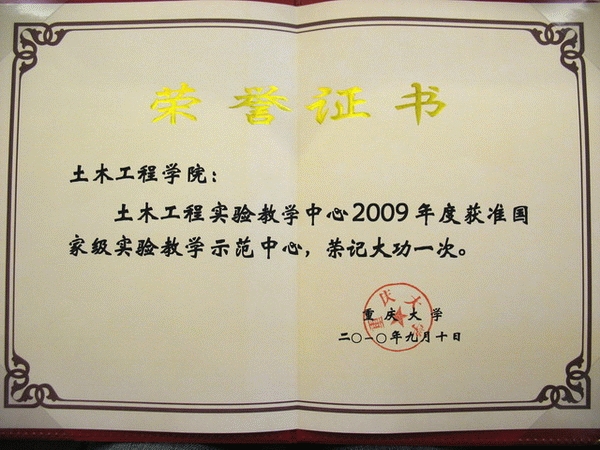 荣誉证书
土木工程学院：
土木工程实验教学中心2009年度获准国
家级实验教学示范中心，荣记大功一次。
重庆大学
重庆大学
二〇一〇年九月十日